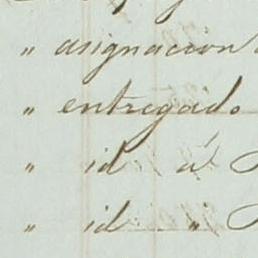 " asignacion
" entregado
" id á
" id "